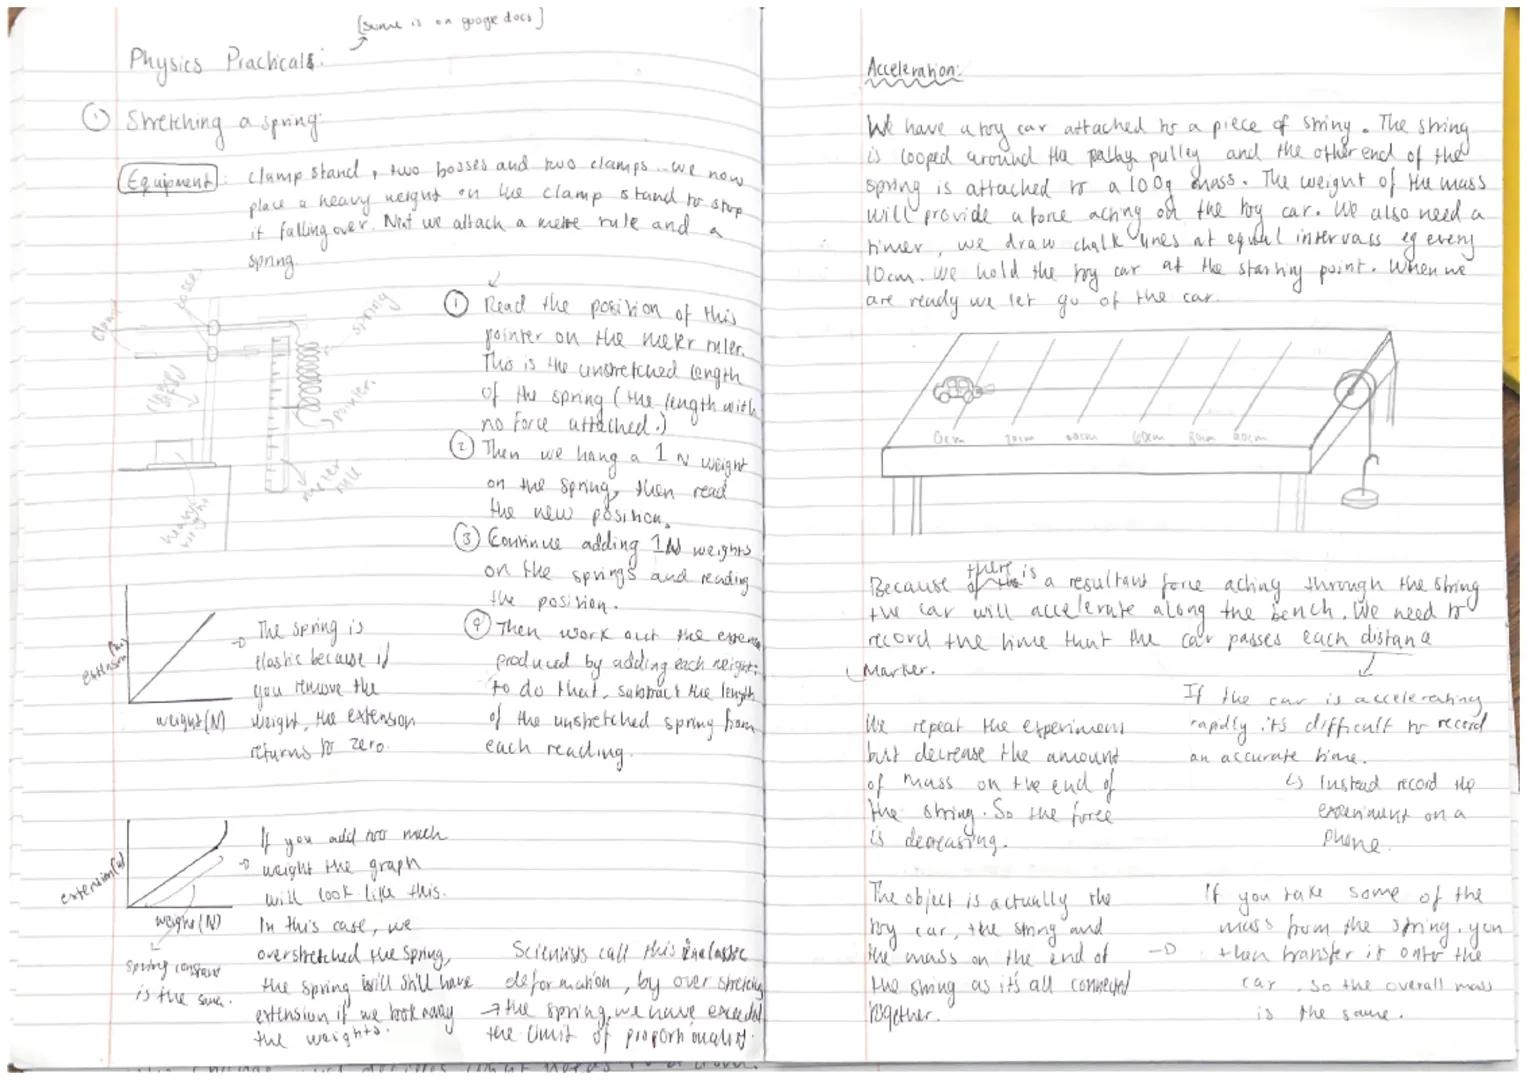 [some is on google docs]
Physics Practicals:
① Stretching a spring:
Equipment: clamp stand, two bosses and two clamps... we now
place a heavy weight on the clamp stand to stop
it falling over. Next we attach a metre rule and a
spring.
clamp
bosses
spring
pointer.
heavy weight
meter rule
① Read the position of this
pointer on the meter ruler.
This is the unstretched length
of the spring (the length with
no force attached.)
② Then we hang a 1 N weight
on the spring, then read
the new position.
③ Continue adding 1N weights
on the springs and reading
the position.
④ Then work out the
produced by adding each weight:
to do that, subtract the length
of the unstretched spring from
each reading.
extension
weight (N)
The spring is
elastic because if
you remove the
weight, the extension
returns to zero.
extension
weight (N)
spring constant
is the same.
If you add too much
weight the graph
will look like this.
In this case, we
overstretched the spring,
the spring will still have
extension if we took away
the weights.
Scientists call this inelastic
deformation, by over stretching
→ the spring, we have exceeded
the limit of proportionality.
Acceleration:
We have a toy car attached to a piece of string. The string
is looped around the pulley and the other end of the
spring is attached to a 100g mass. The weight of the mass
will provide a force acting on the toy car. We also need a
timer, we draw chalk lines at equal intervals eg every
10cm. We hold the toy car at the starting point. When we
are ready we let go of the car.
0cm 60cm
Because there is a resultant force acting through the string
the car will accelerate along the bench. We need to
record the time that the car passes each distance
marker.
If the car is accelerating
rapidly its difficult to record
an accurate time.
↳ Instead record the
experiment on a
phone.
We repeat the experiment
but decrease the amount
of mass on the end of
the string. So the force
is decreasing.
The object is actually the
toy car, the string and
the mass on the end of
the string as it's all connected
together.
If you take some of the
mass from the string, you
than transfer it onto the
car, so the overall mass
is the same.